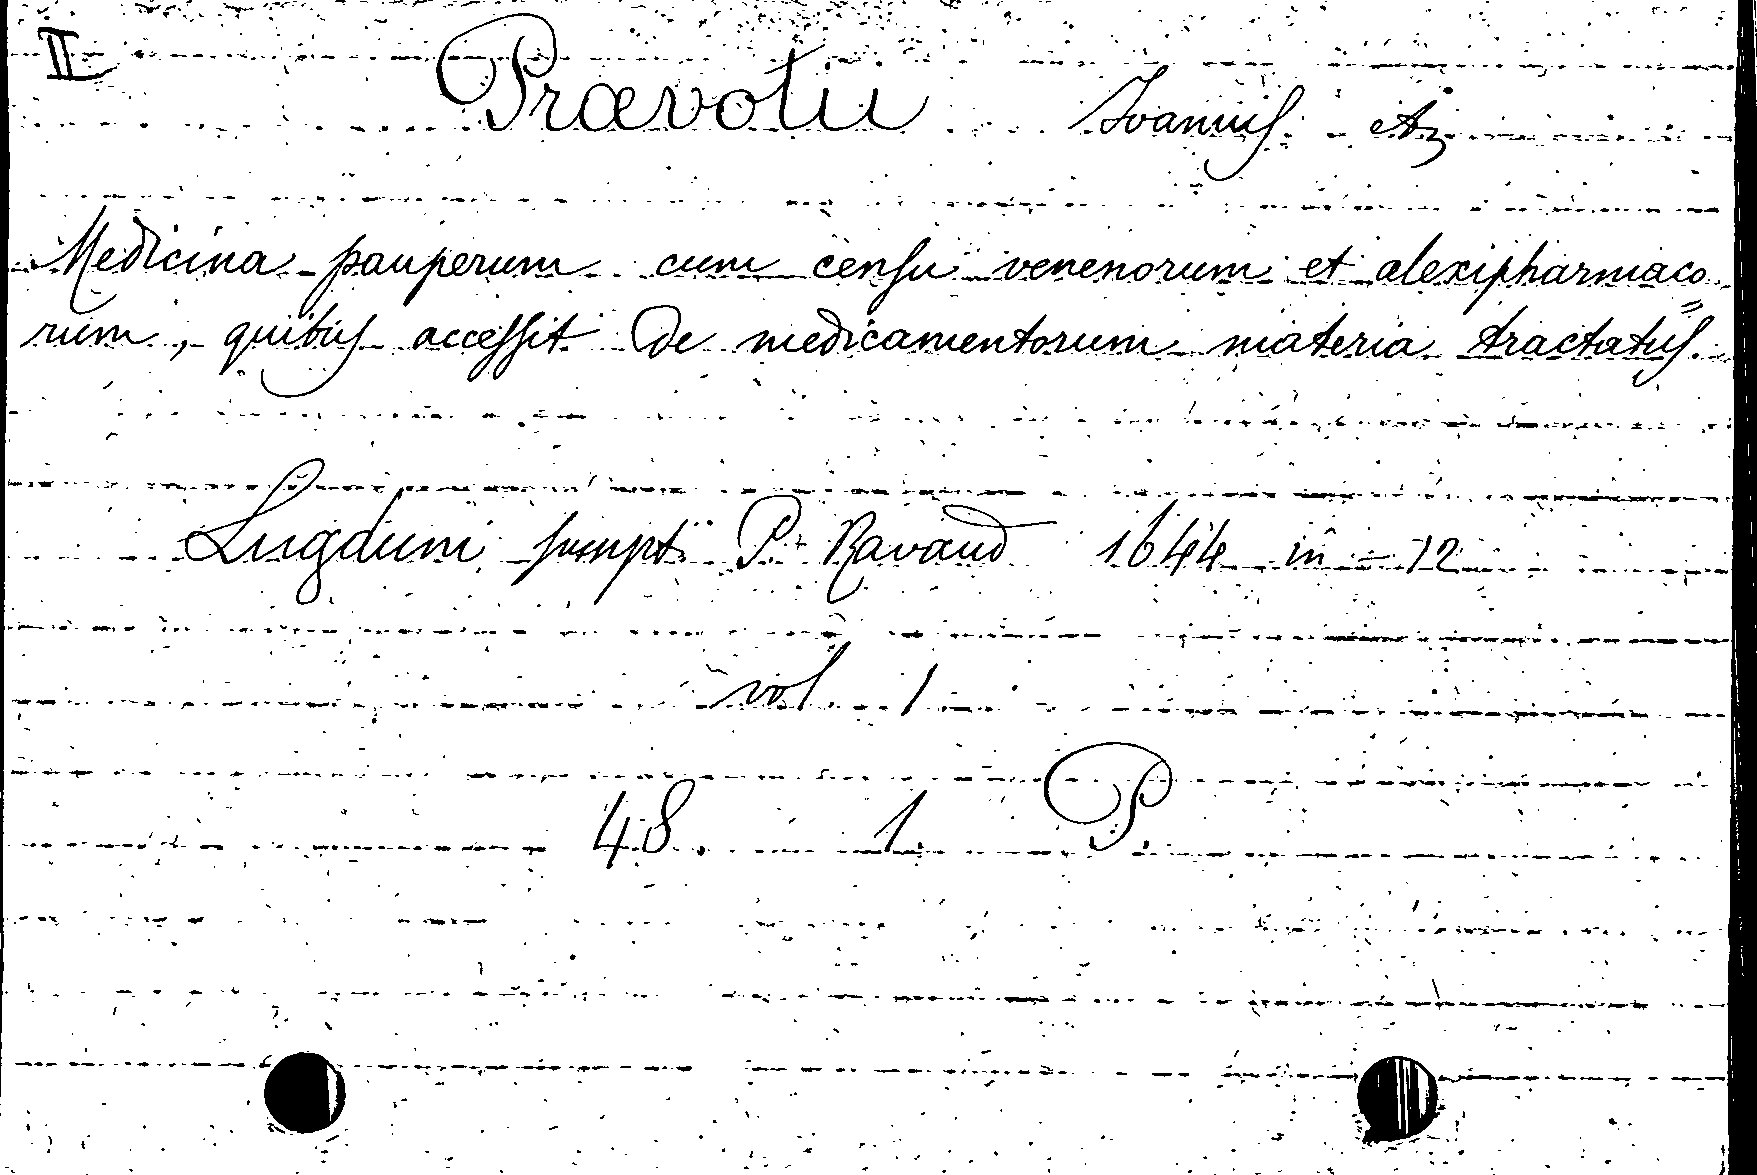 II
Prævotii Joannis
Medicina pauperum cum censu venenorum et alexipharmaco=
rum, quibus accessit De medicamentorum materia tractatus.
Lugduni sumpt. P. Ravaud 1644 in-12
vol 1
48. 1. P